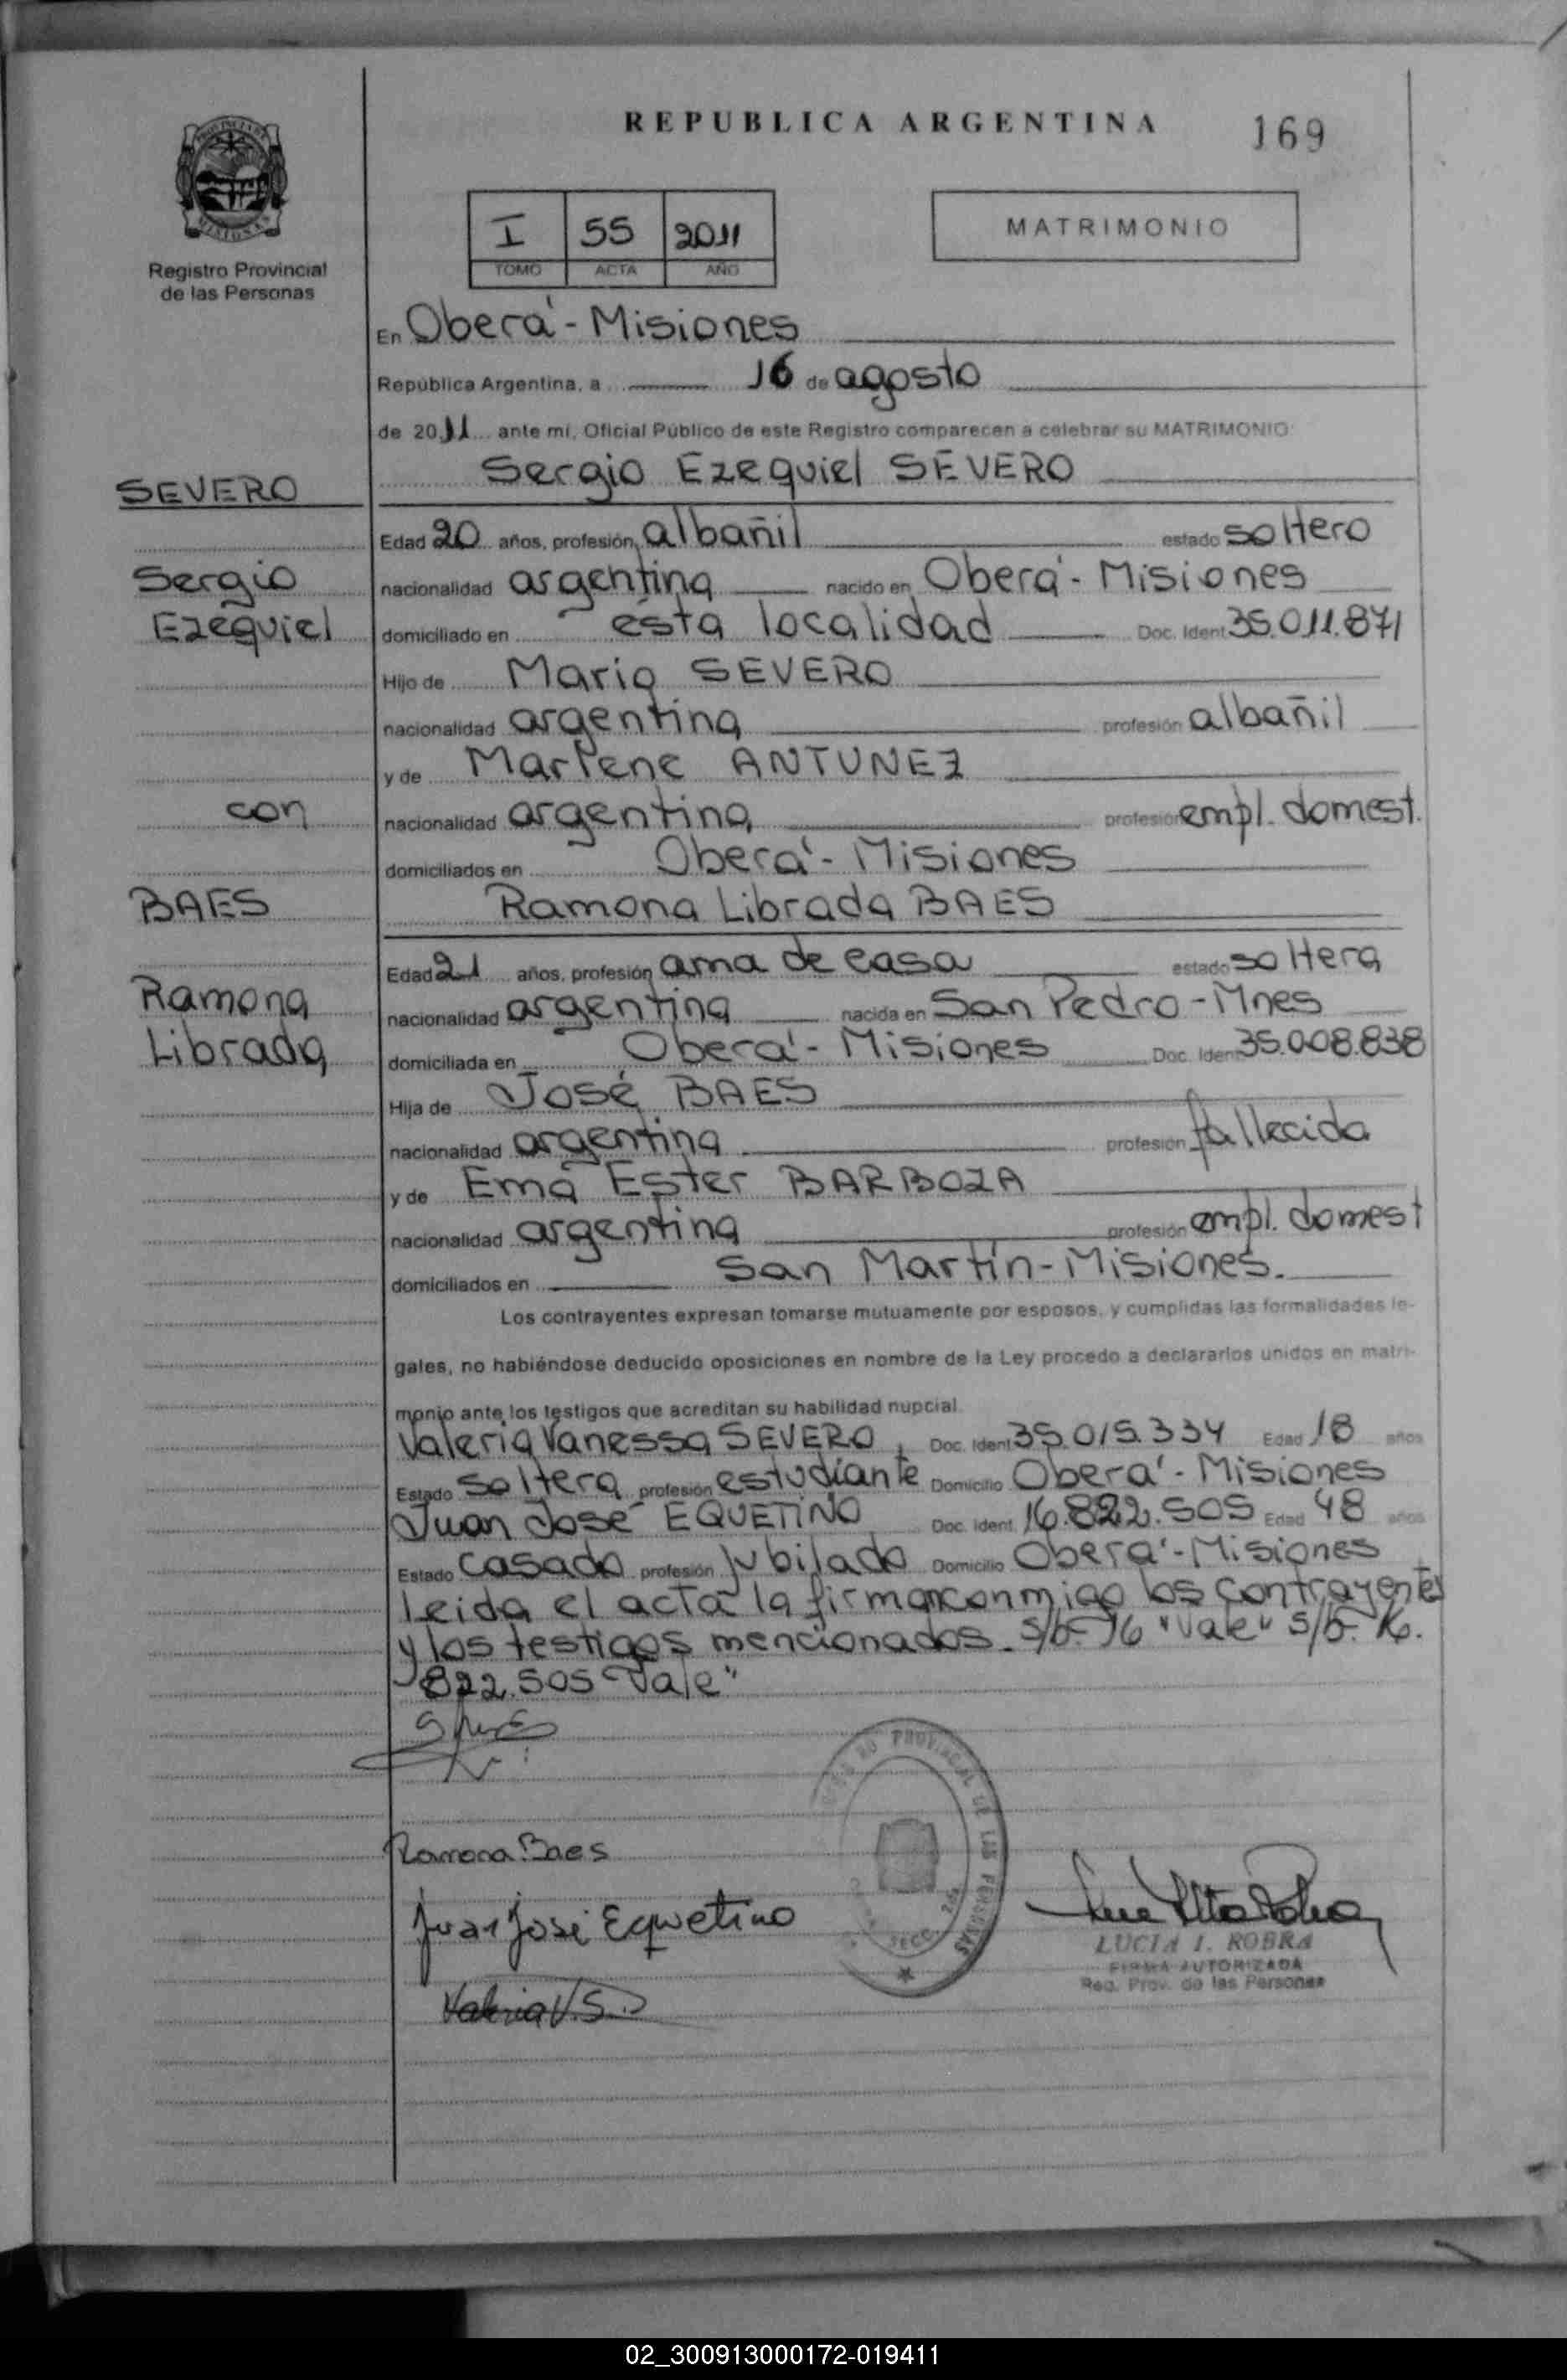 REPUBLICA ARGENTINA
169
PROVINCIA DE
MISIONES
Registro Provincial
de las Personas
I 55 2011
TOMO ACTA AÑO
MATRIMONIO
En Oberá - Misiones
República Argentina, a 16 de agosto
de 2011 ante mí, Oficial Público de este Registro comparecen a celebrar su MATRIMONIO:
Sergio Ezequiel SEVERO
SEVERO
Edad 20 años, profesión albañil estado soltero
Sergio
nacionalidad argentina nacido en Oberá - Misiones
Ezequiel
domiciliado en ésta localidad Doc. Ident 35.011.871
Hijo de Mario SEVERO
nacionalidad argentina profesión albañil
y de Marlene ANTUNEZ
con
nacionalidad argentina profesión empl. domest.
domiciliados en Oberá - Misiones
BAES
Ramona Librada BAES
Edad 21 años, profesión ama de casa estado soltera
Ramona
nacionalidad argentina nacida en San Pedro - Mnes
Librada
domiciliada en Oberá - Misiones Doc. Ident 35.008.838
Hija de José BAES
nacionalidad argentina profesión fallecida
y de Ema Ester BARBOZA
nacionalidad argentina profesión empl. domest
domiciliados en San Martín - Misiones.
Los contrayentes expresan tomarse mutuamente por esposos, y cumplidas las formalidades le-
gales, no habiéndose deducido oposiciones en nombre de la Ley procedo a declararlos unidos en matri-
monio ante los testigos que acreditan su habilidad nupcial.
Valeria Vanessa SEVERO, Doc. Ident 35.015.334 Edad 18 años
Estado soltera profesión estudiante Domicilio Oberá - Misiones
Juan José EQUETINO Doc. Ident. 16.822.505 Edad 48 años
Estado Casado profesión Jubilado Domicilio Oberá - Misiones
leida el acta la firman conmigo los contrayentes
y los testigos mencionados. s/b- 16 "Vale" s/b- 16.
822.505 "Vale"
Ramona Baes
Juan José Equetino
Valeria V.S.
PROVINCIAL DE LAS PERSONAS
SECC.
LUCIA I. ROBRA
FIRMA AUTORIZADA
Reg. Prov. de las Personas
02_300913000172-019411